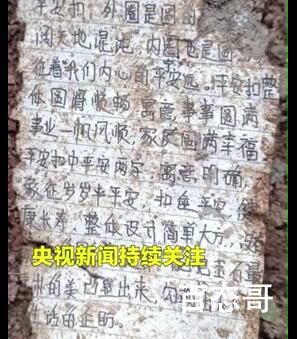 平安扣，外圈是圆的
阔天地混沌，内圈也是圆
征着我们内心的平安远。平安扣整
体圆滑顺畅，寓意事事圆满
事业一帆风顺，家庭圆满幸福
平安扣中平安两字，寓意明确，
象征岁岁年平安，扣住平安，健
康长寿。整体设计简单大方，
央视新闻持续关注
石量
的美凸显出来，
杰哥
生活的